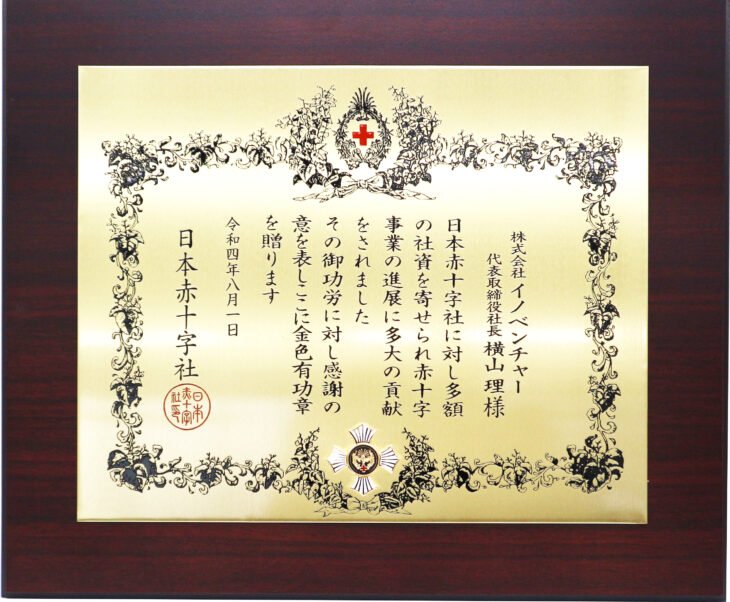 株式会社 イノベンチャー
代表取締役社長 横山 理 様
日本赤十字社に対し多額
の社資を寄せられ赤十字
事業の進展に多大の貢献
をされました
その御功労に対し感謝の
意を表しここに金色有功章
を贈ります
令和四年八月一日
日本赤十字社
日本
赤十字
社印